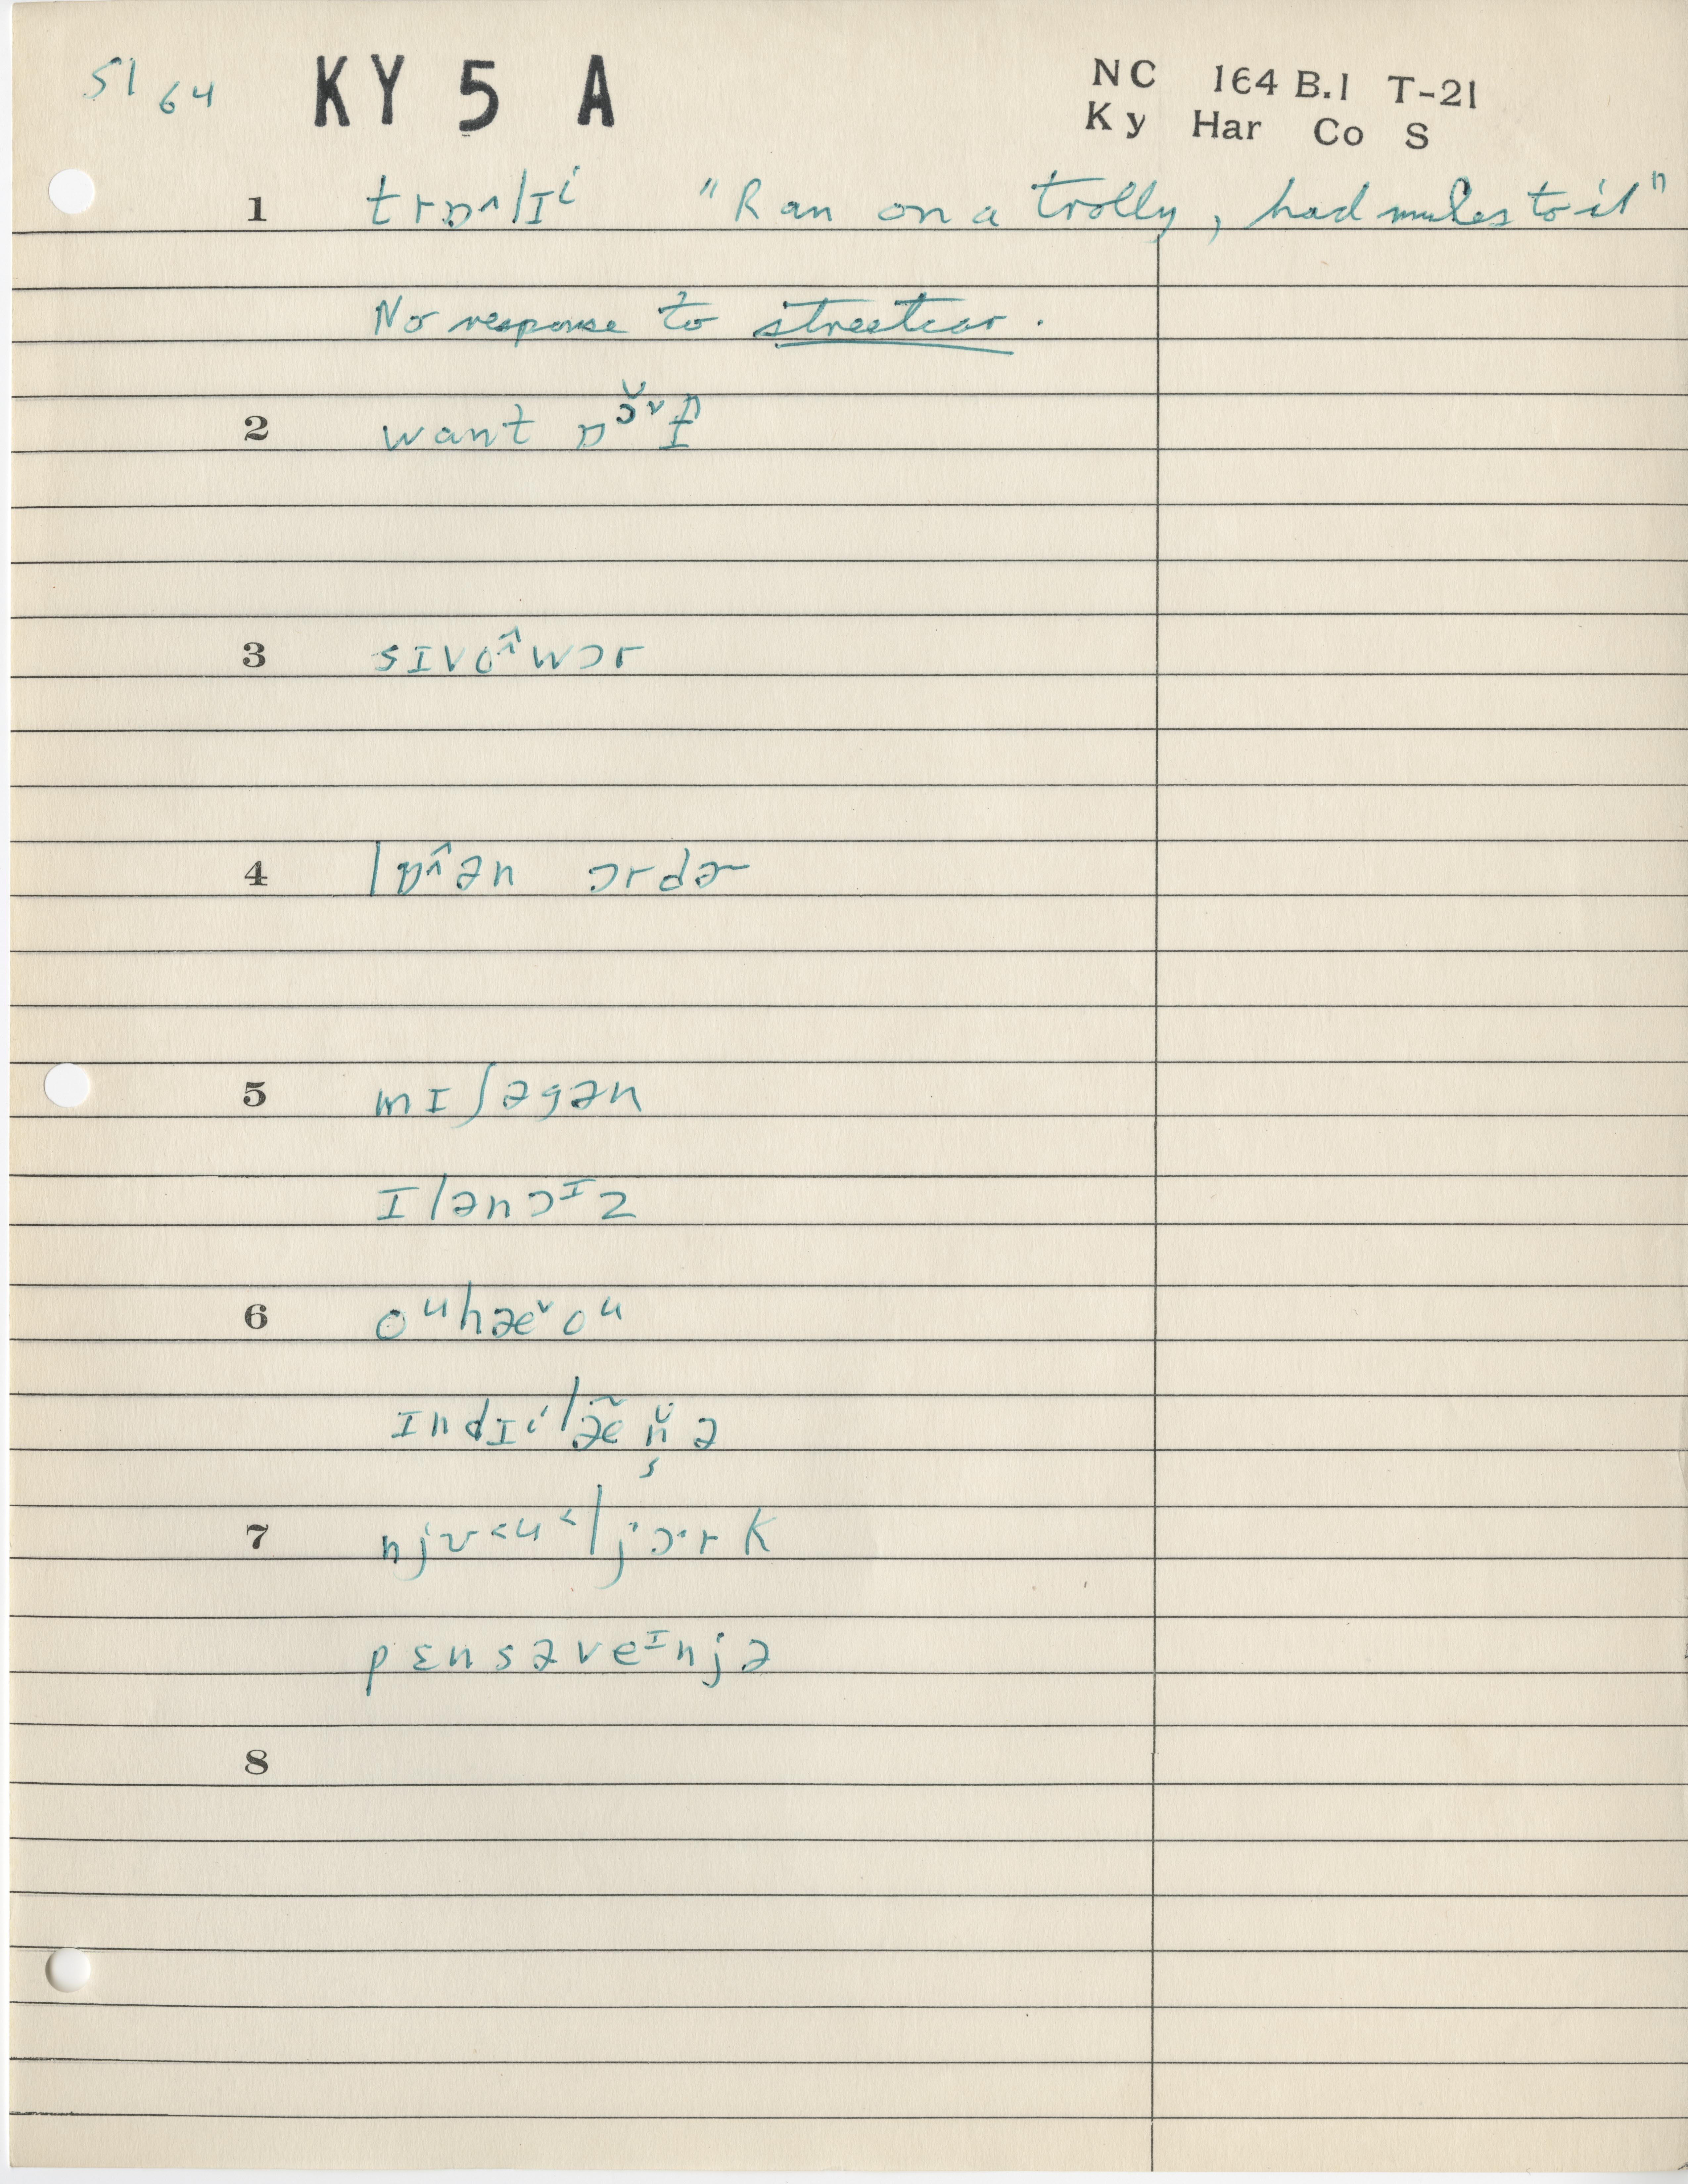 51 64 KY 5 A NC 164 B.1 T-21
Ky Har Co S
1 trɒ^lɪⁱ "Ran on a trolly, had mules to it"
No response to streetcar.
2 want
3 sɪvo^wɔr
4 lɒ^ən ɔrdɚ
5 mɪʃəgən
ɪlənɔᶦz
6 oᵘhæˇoᵘ
ɪndɪⁱ|æ̃n̆ə
7 njʊ<ᵘ<|jɔ·rk
pɛnsəveᶦnjə
8